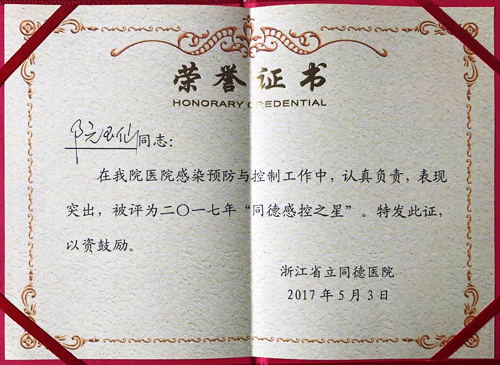 荣誉证书
HONORARY CREDENTIAL
同志：
在我院医院感染预防与控制工作中，认真负责，表现
突出，被评为二〇一七年“同德感控之星”。特发此证，
以资鼓励。
浙江省立同德医院
2017年5月3日